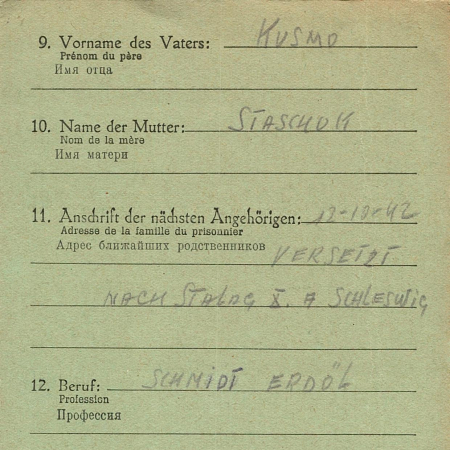 9. Vorname des Vaters: KUSMO
Prénom du père
Имя отца
10. Name der Mutter: STASCHOK
Nom de la mère
Имя матери
11. Anschrift der nächsten Angehörigen: 12-10-42
Adresse de la famille du prisonnier
Адрес ближайших родственников VERSETZT
NACH STALAG X. A SCHLESWIG
12. Beruf: SCHMIDT ERDÖL
Profession
Профессия